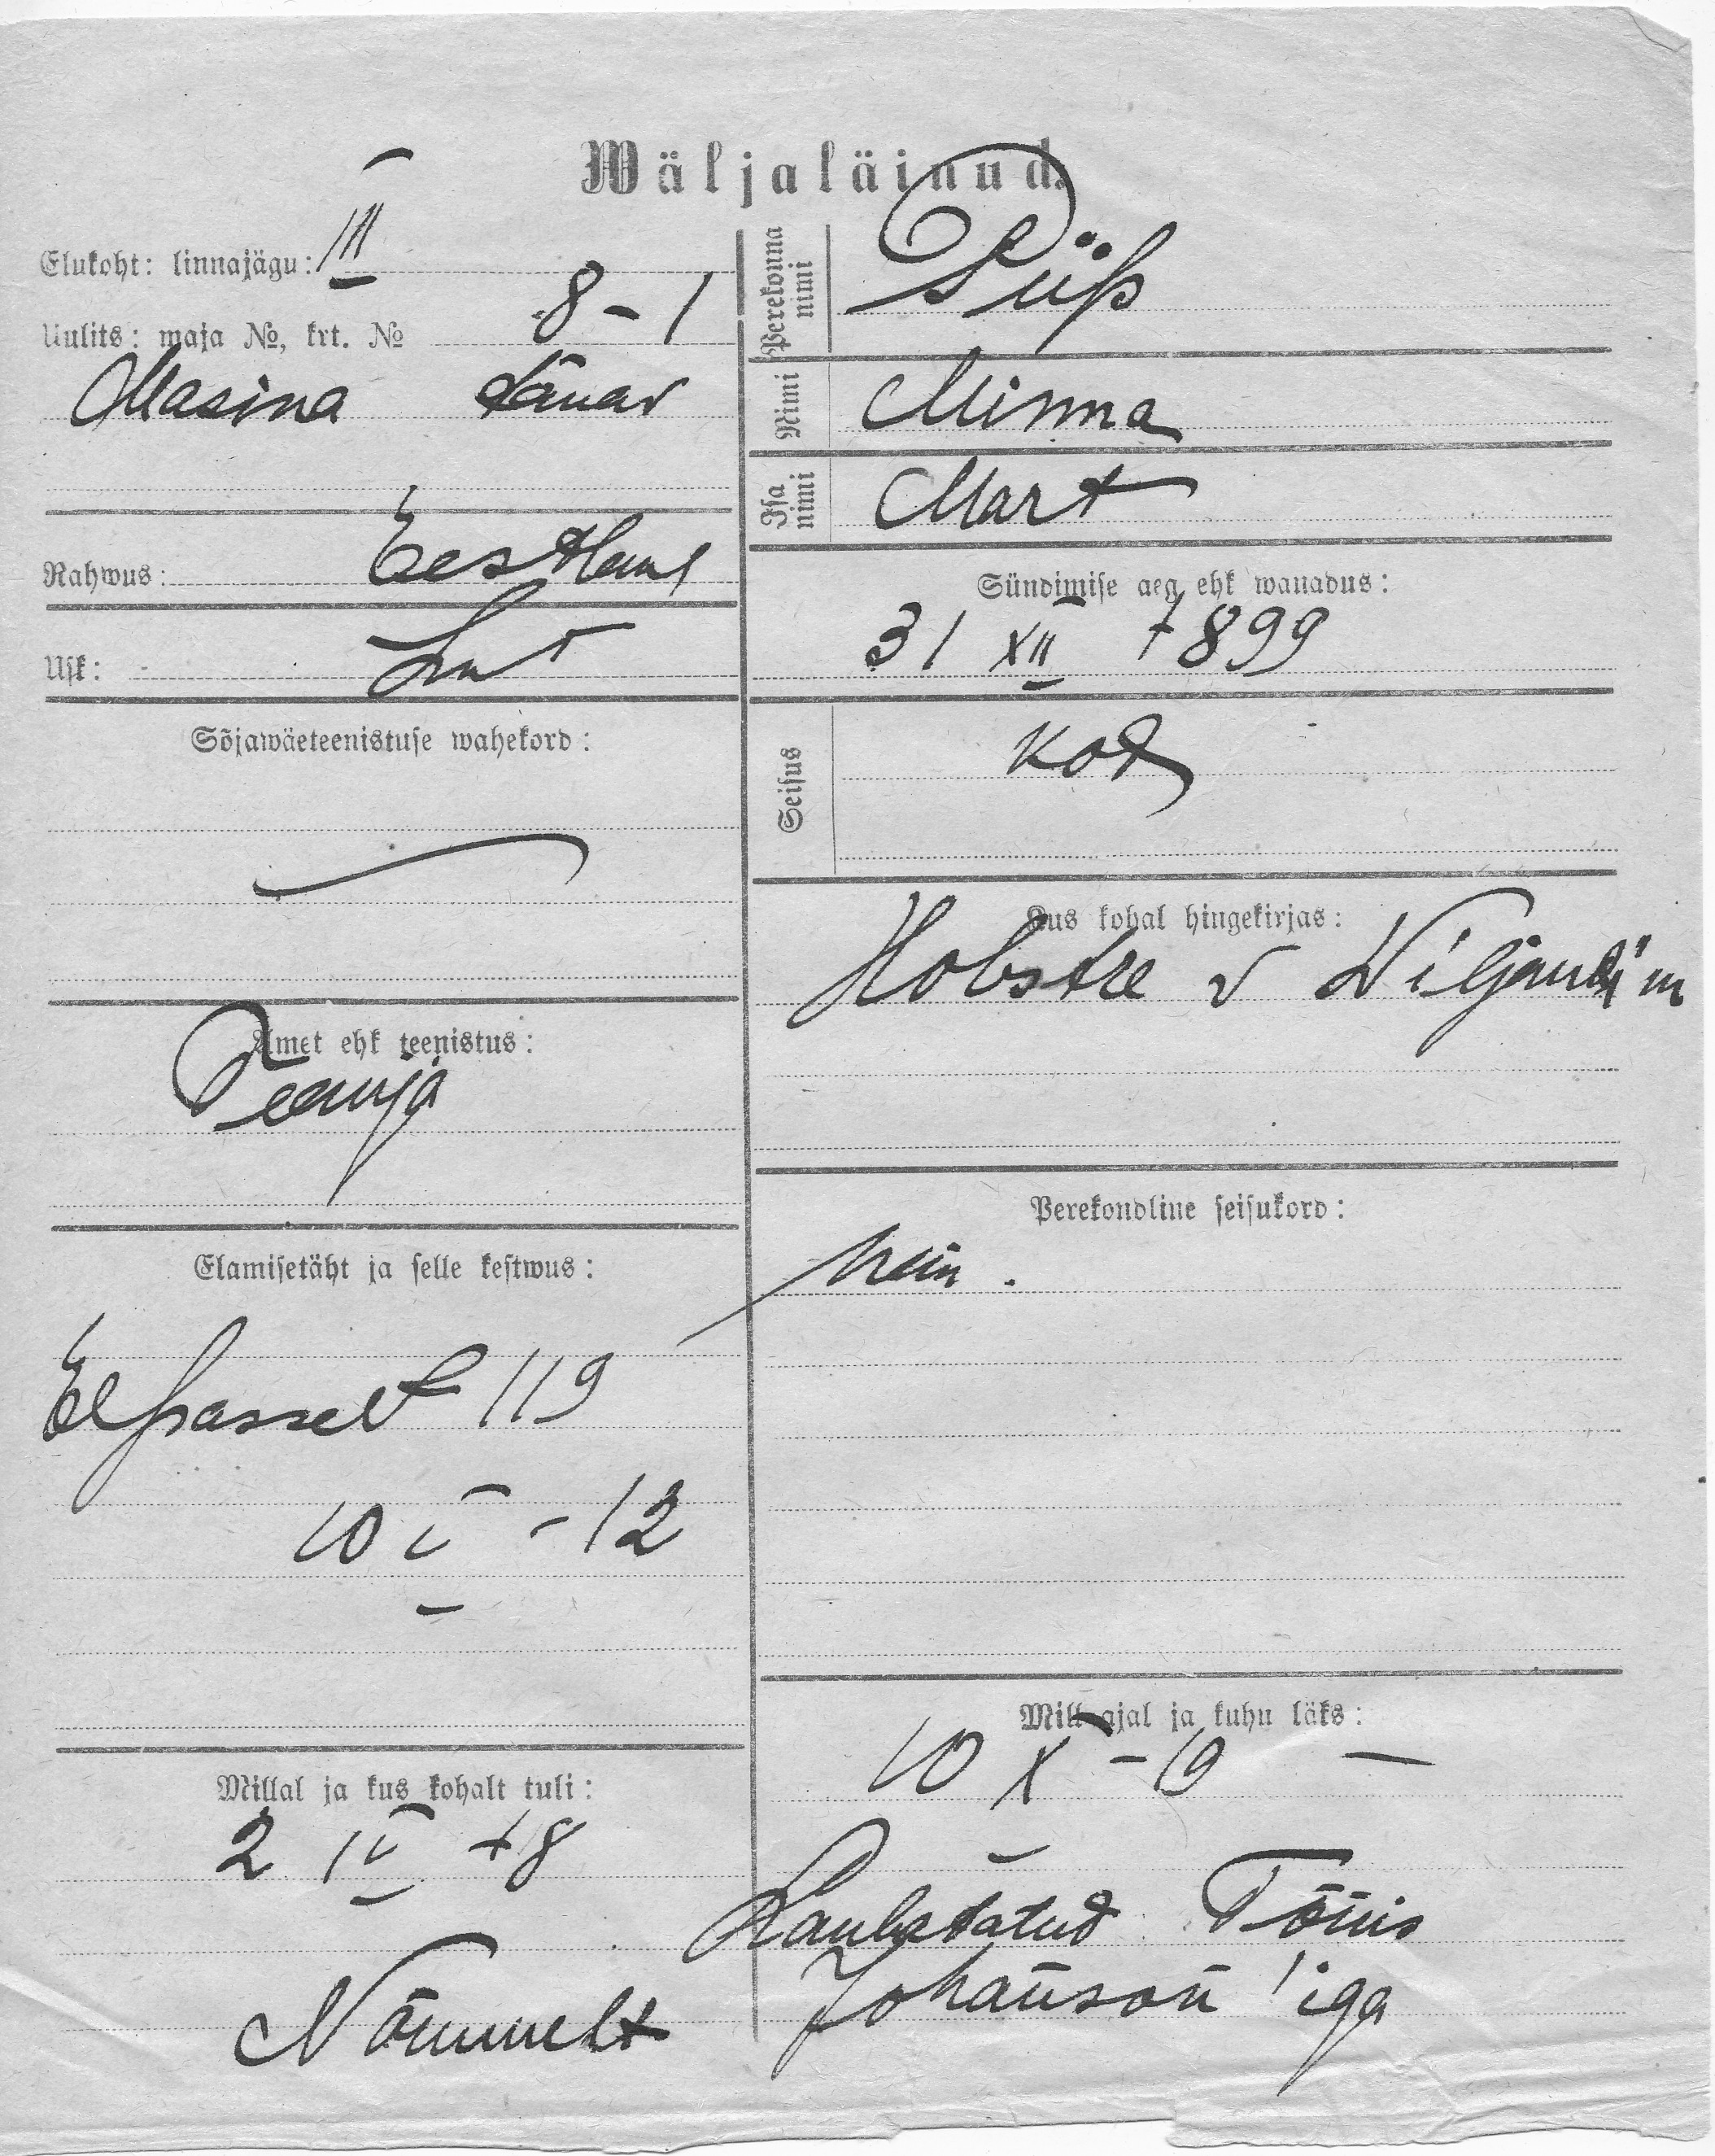 Wäljaläinud.
Elukoht: linnajägu: III
Uulits: maja №, krt. № 8-1
Masina tänav
Rahwus: Eestlane
Usk: Lut
Sõjawäeteenistuse wahekord:
Amet ehk teenistus:
Teenija
Elamisetäht ja selle kestwus:
Elpasset 119
10 I - 12
Millal ja kus kohalt tuli:
2 IV 18
Nõmmelt
Perekonna nimi
Süß
Nimi Minna
Isa nimi Mart
Sündimise aeg ehk wanadus:
31 XII 1899
Seisus
kod
Kus kohal hingekirjas:
Holstre v Wiljandi m
Perekondline seisukord:
nein.
Mill ajal ja kuhu läks:
10 X - 19 —
Laulatatud Tõnis
Johanson'iga